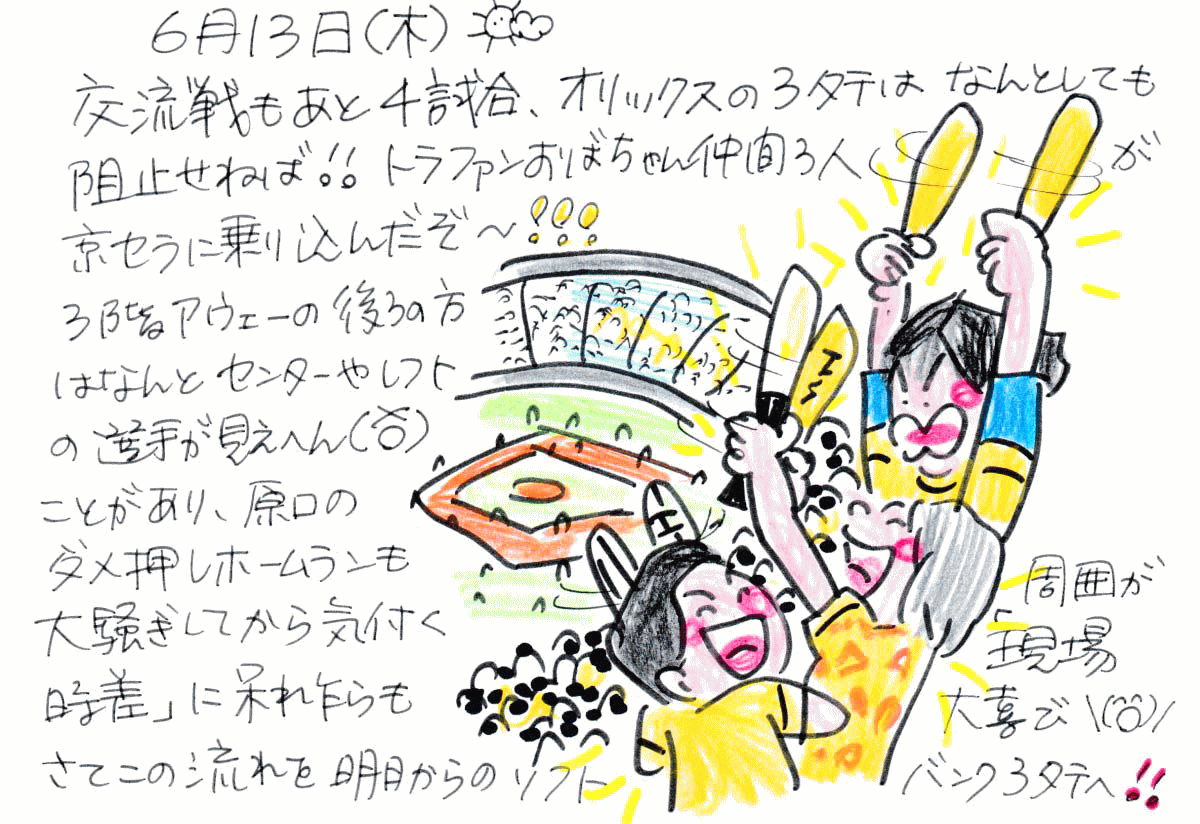 6月13日(木)
交流戦もあと4試合、オリックスの3タテはなんとしても
阻止せねば!! トラファンおばちゃん仲間3人が
京セラに乗り込んだぞ〜!!!
3階アウェーの後ろの方
はなんとセンターやレフト
の選手が見えへん(ô)
ことがあり、原口の
ダメ押しホームランも
大騒ぎしてから気付く
周囲が
「現場
時差」に呆れ乍らも
大喜び\(ô)/
さてこの流れを明日からのソフトバンク3タテへ!!